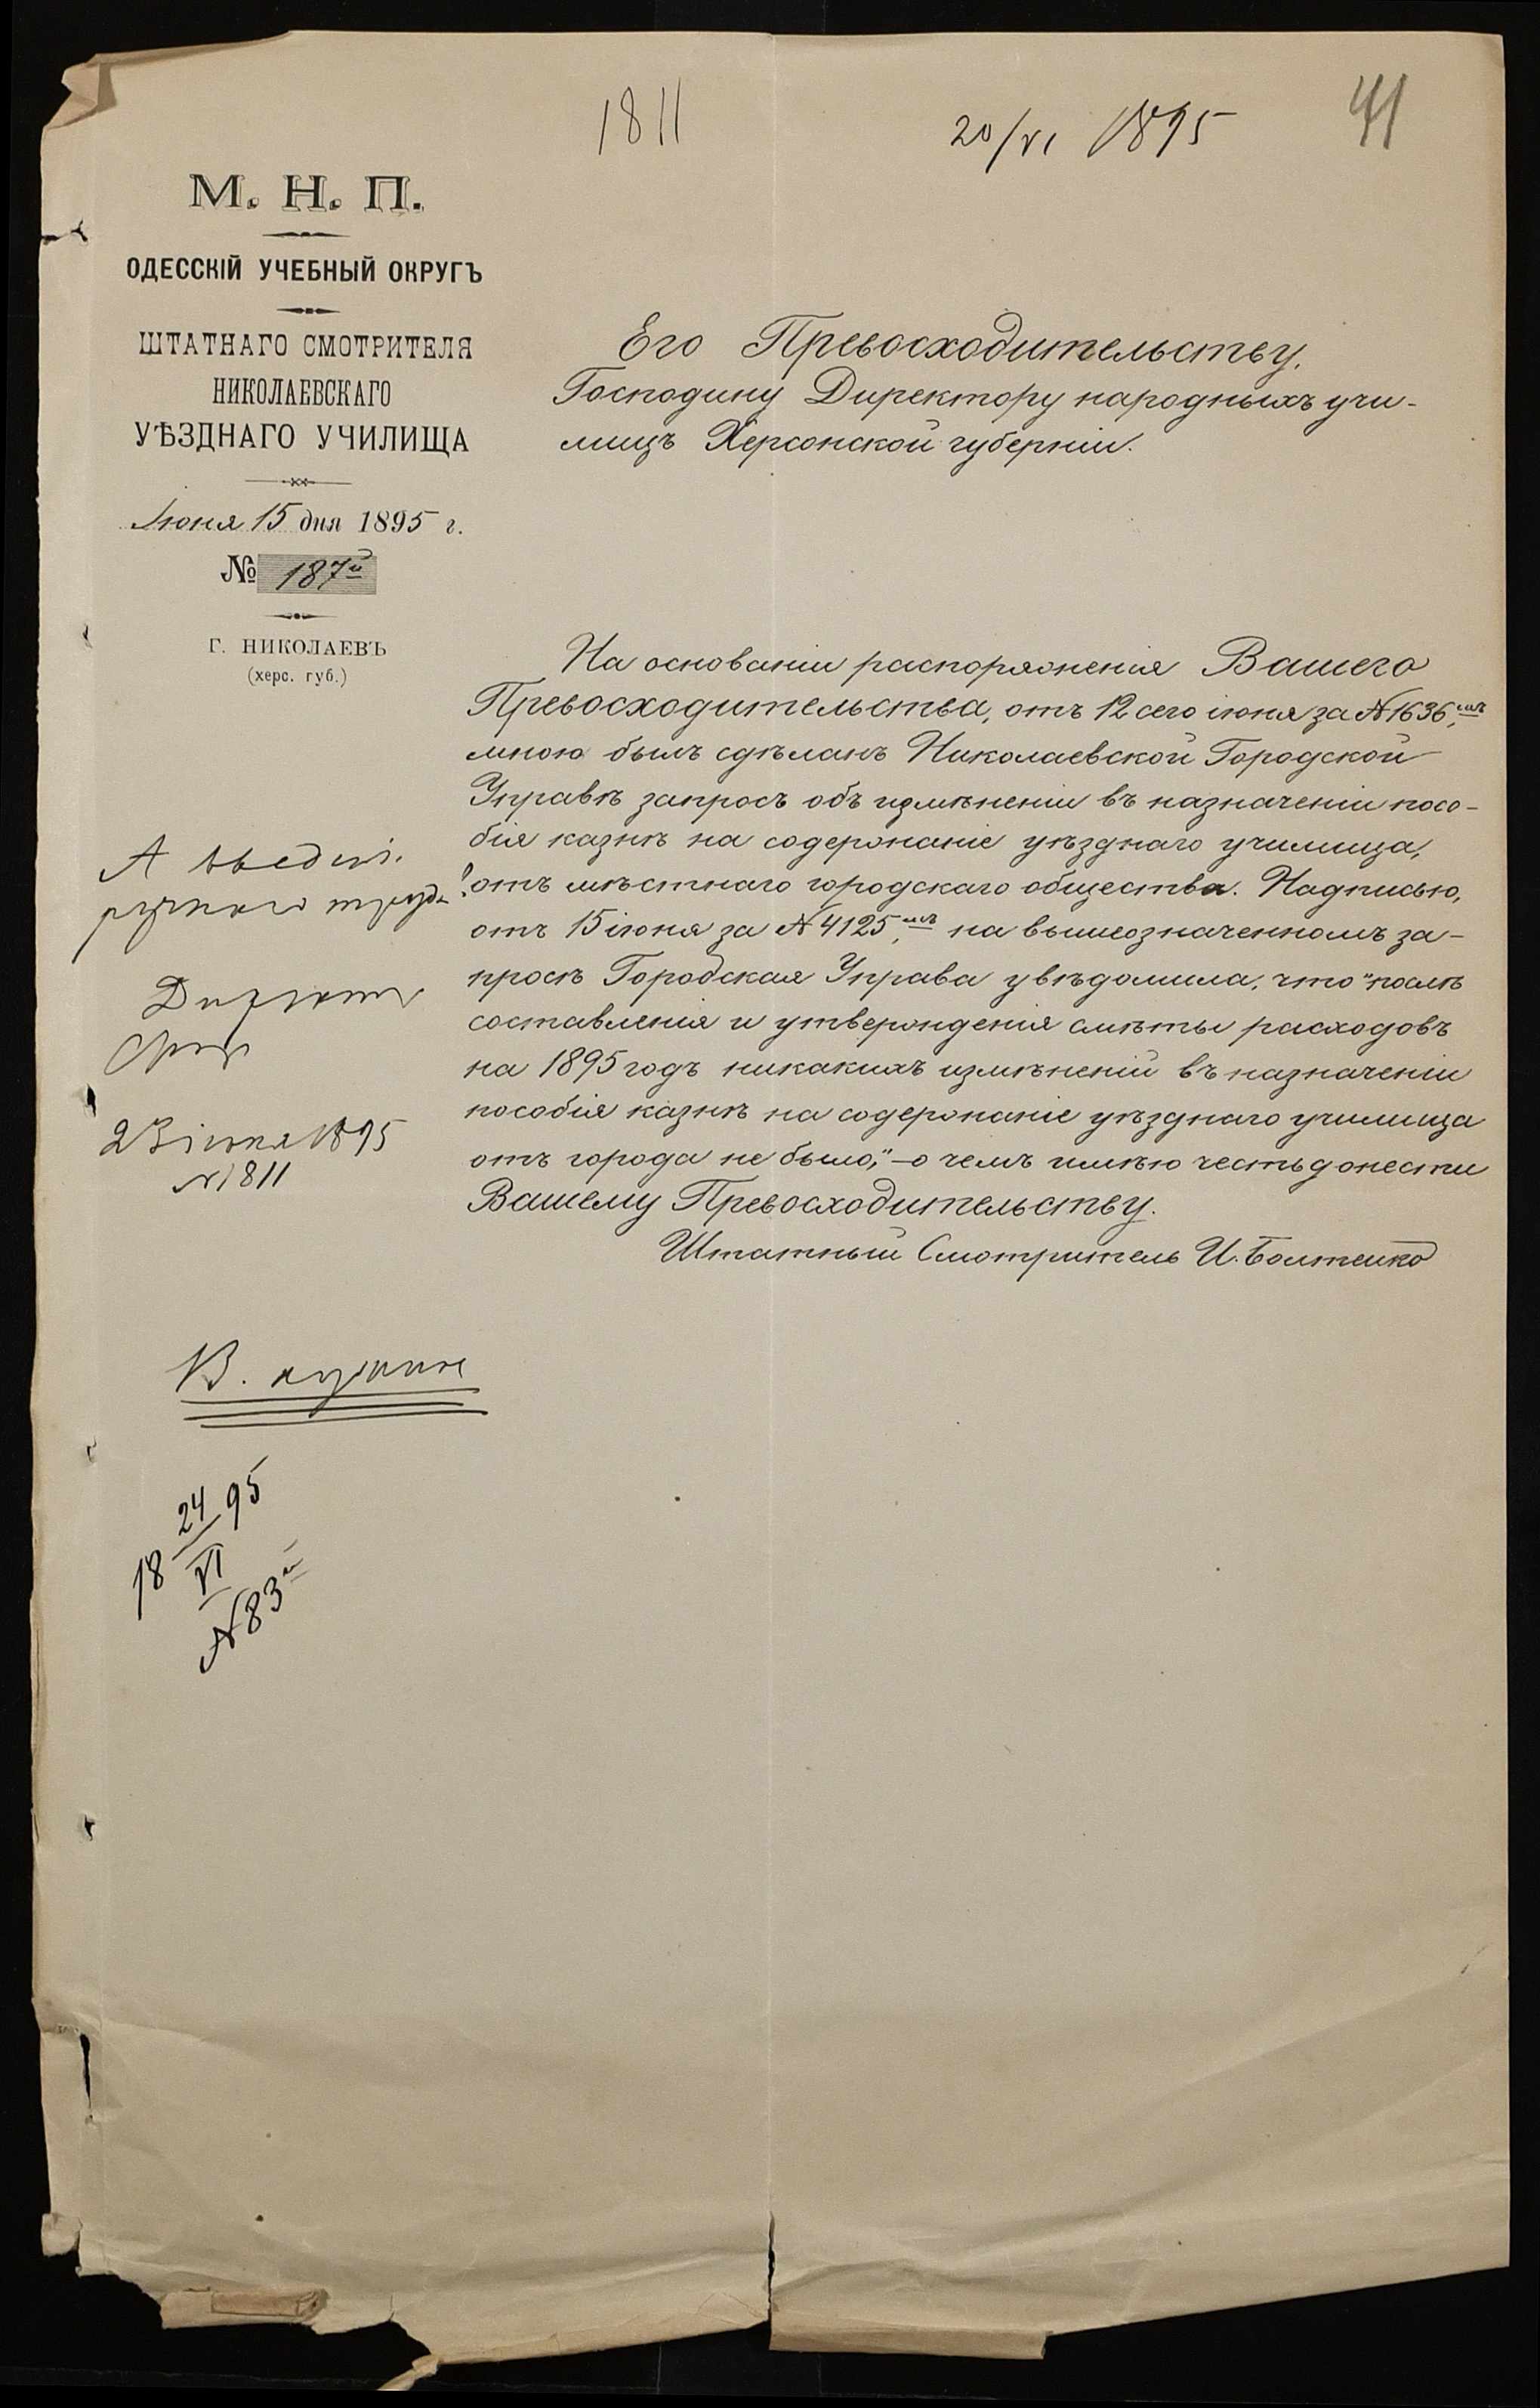 1811
20/VI 1895
41
М. Н. П.
ОДЕССКІЙ УЧЕБНЫЙ ОКРУГЪ
ШТАТНАГО СМОТРИТЕЛЯ
НИКОЛАЕВСКАГО
УѢЗДНАГО УЧИЛИЩА
Іюня 15 дня 1895 г.
№ 187й
Г. НИКОЛАЕВЪ
(херс. губ.)
Его Превосходительству,
Господину Директору народныхъ учи-
лищъ Херсонской губерніи.
На основаніи распоряженія Вашего
Превосходительства, отъ 12 сего іюня за № 1636,мъ
мною былъ сдѣланъ Николаевской Городской
Управѣ запросъ объ измѣненіи въ назначеніи посо-
бія казнѣ на содержаніе уѣзднаго училища,
отъ мѣстнаго городскаго общества. Надписью,
отъ 15 іюня за № 4125,мъ на вышеозначенномъ за-
просѣ Городская Управа увѣдомила, что "послѣ
составленія и утвержденія смѣты расходовъ
на 1895 годъ никакихъ измѣненій въ назначеніи
пособія казнѣ на содержаніе уѣзднаго училища
отъ города не было," – о чемъ имѣю честь донести
Вашему Превосходительству.
Штатный Смотритель И. Болтенко
А введеніе
ручного труда?
23 іюня 1895
№ 1811
18 24/VI 95
№ 83й